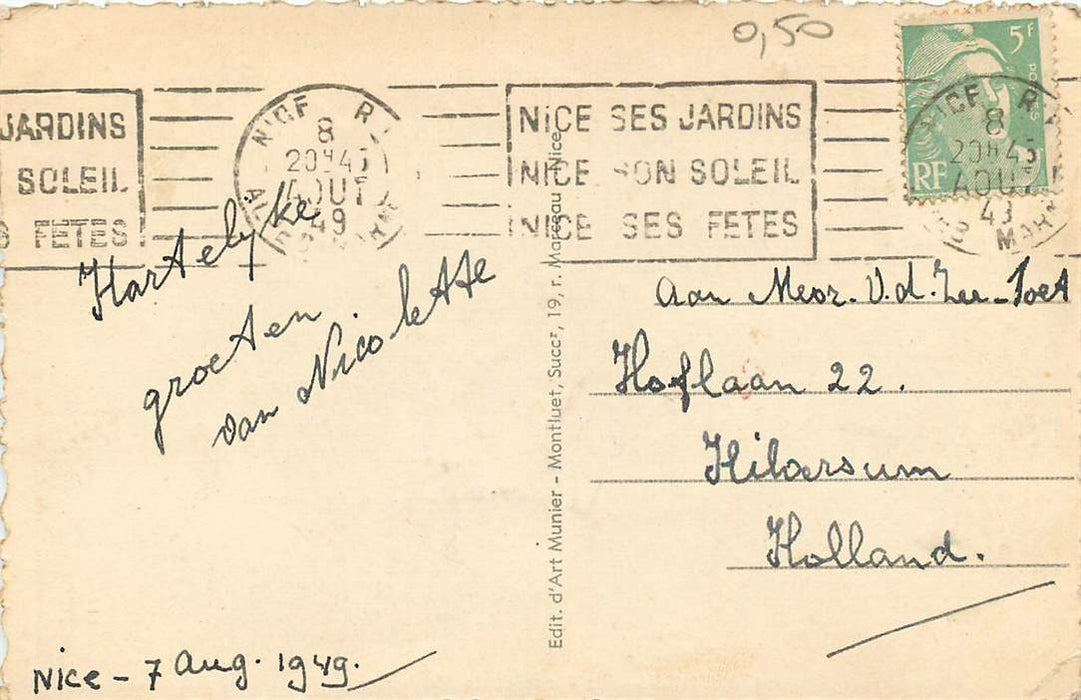 0,50
5f
POSTES
RF
JARDINS
SOLEIL
S FETES
NICE R.
8
20H45
AOUT
49
NICE SES JARDINS
NICE SON SOLEIL
NICE SES FETES
NICE R
8
20H45
AOUT
49
MAR
Hartelyke
groeten
van Nicolette
Nice - 7 Aug. 1949.
Edit. d'Art Munier - Montluet, Succr, 19, r. Marceau Nice
Aan Mevr. V.d. Zee-Poet
Hoflaan 22.
Hilversum
Holland.